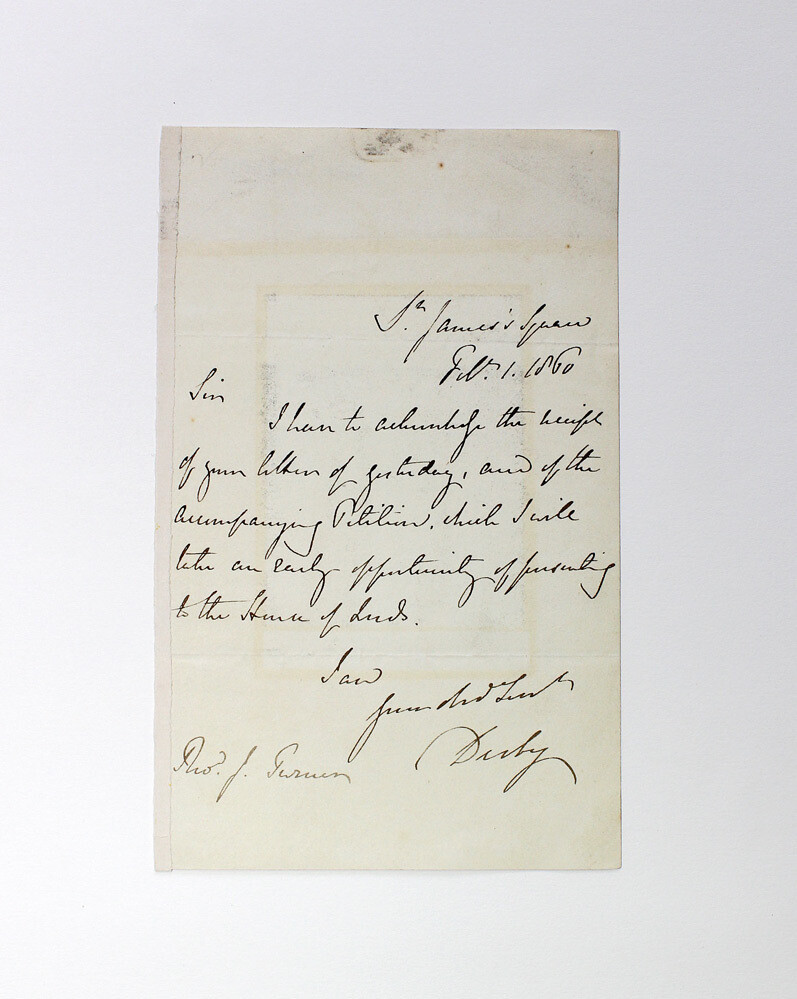 St. James's Square
Feby. 1. 1860
Sir
I have to acknowledge the receipt
of your letter of yesterday, and of the
accompanying Petition, which I will
take an early opportunity of presenting
to the House of Lords.
I am
Your obdt Servt
Derby
Revd. J. Turner